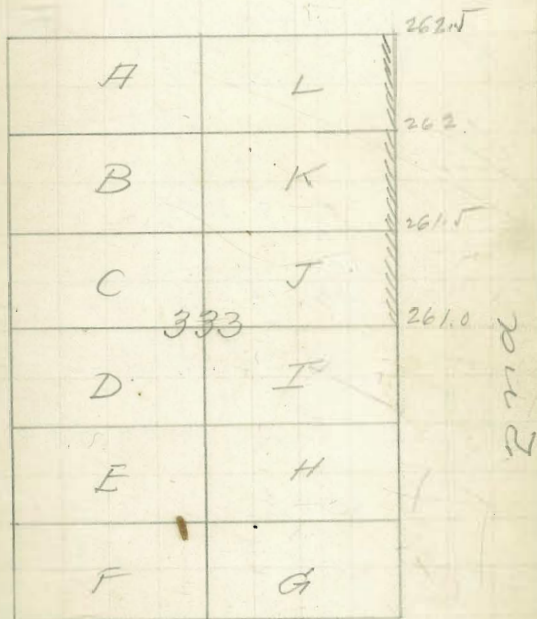 262.5
A L
262.
B K
261.5
C J
333
261.0
D I
E H
F G